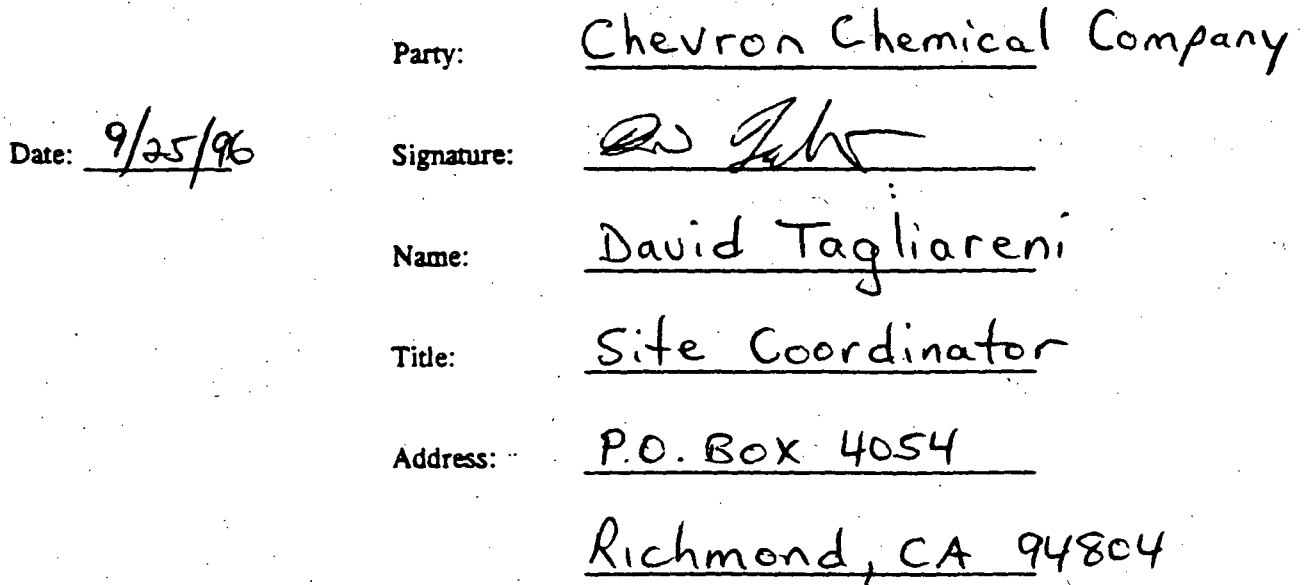 Party: Chevron Chemical Company
Date: 9/25/96 Signature:
Name: David Tagliareni
Title: Site Coordinator
Address: P.O. Box 4054
Richmond, CA 94804